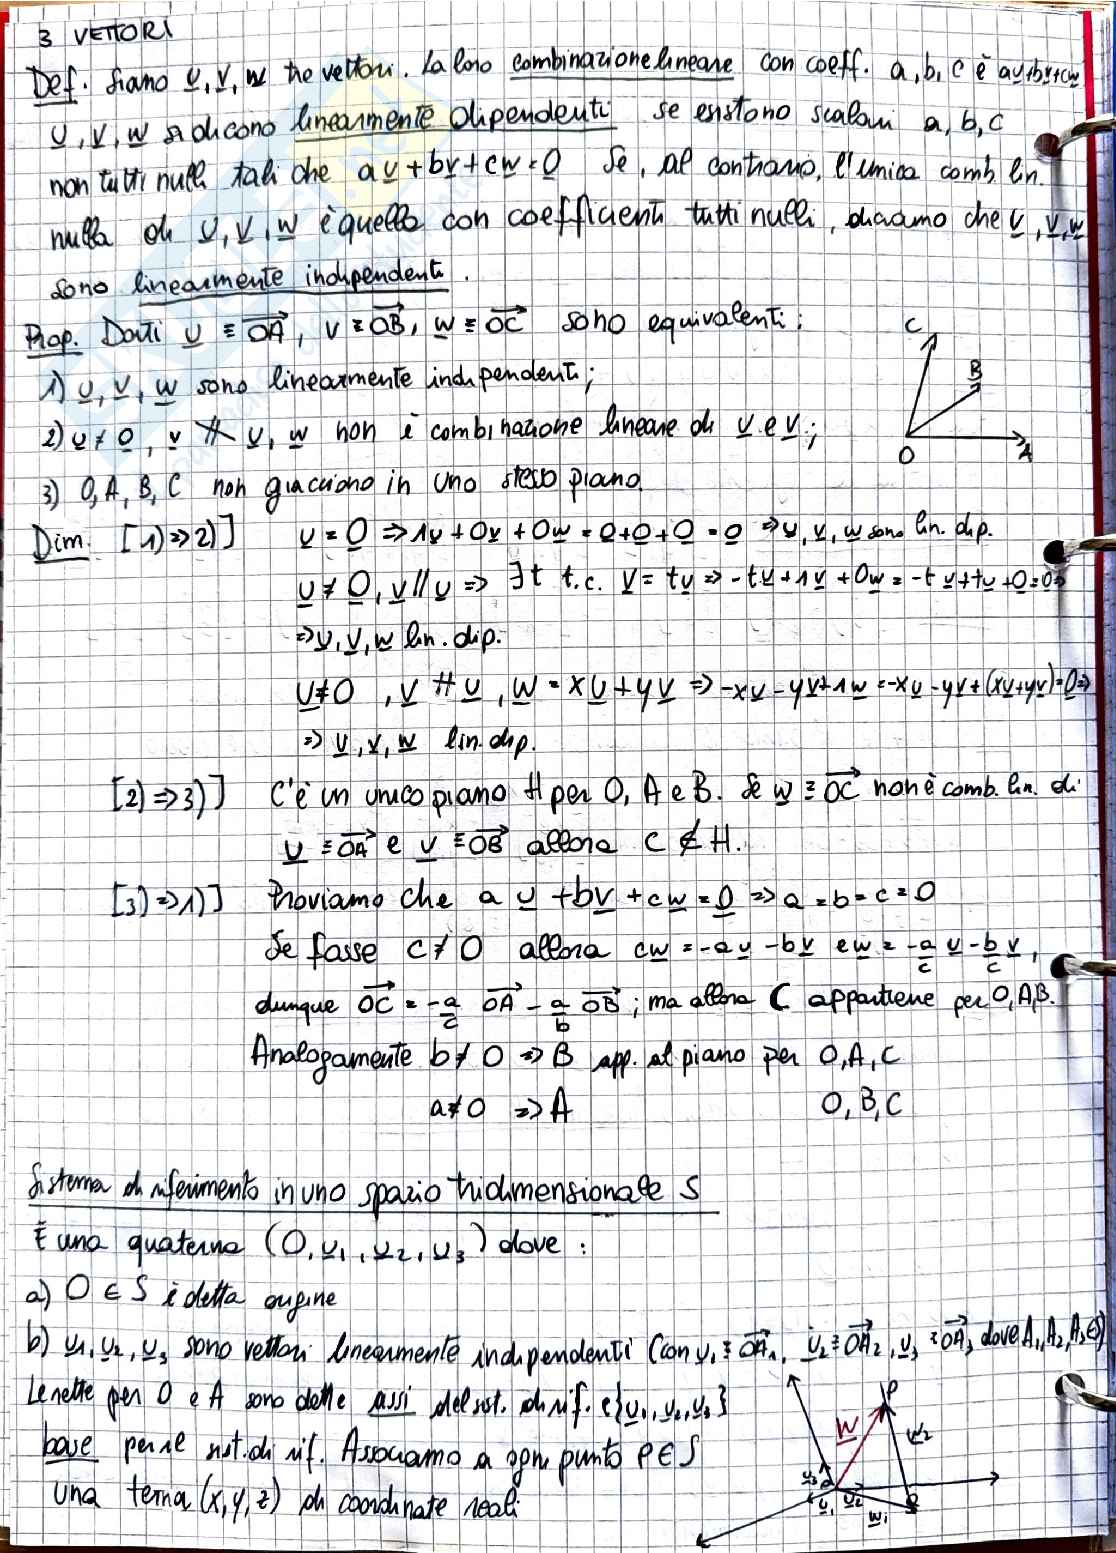 3 VETTORI
Def. Siano u, v, w tre vettori. La loro combinazione lineare con coeff. a, b, c è au+bv+cw
u, v, w si dicono linearmente dipendenti se esistono scalari a, b, c
non tutti nulli tali che au + bv + cw = 0 Se, al contrario, l'unica comb. lin.
nulla di u, v, w è quella con coefficienti tutti nulli, diciamo che u, v, w
sono linearmente indipendenti.
Prop. Dati u ≡ OA, v ≡ OB, w ≡ OC sono equivalenti:
1) u, v, w sono linearmente indipendenti;
2) u ≠ 0, v ∦ u, w non è combinazione lineare di u e v;
3) O, A, B, C non giacciono in uno stesso piano.
C
B
O
A
Dim. [1) ⇒ 2)] u = 0 ⇒ 1u + 0v + 0w = 0+0+0 = 0 ⇒ u, v, w sono lin. dip.
u ≠ 0, v // u ⇒ ∃ t t.c. v = tu ⇒ -tu + 1v + 0w = -tu + tu + 0 = 0 ⇒
⇒ u, v, w lin. dip.
u ≠ 0, v ∦ u, w = xu + yv ⇒ -xu - yv + 1w = -xu - yv + (xu+yv) = 0 ⇒
⇒ u, v, w lin. dip.
[2) ⇒ 3)] C'è un unico piano H per O, A e B. Se w ≡ OC non è comb. lin. di
u ≡ OA e v ≡ OB allora C ∉ H.
[3) ⇒ 1)] Proviamo che au + bv + cw = 0 ⇒ a = b = c = 0
Se fosse c ≠ 0 allora cw = -au - bv e w = -a/c u - b/c v,
dunque OC = -a/c OA - a/b OB; ma allora C appartiene per O, A, B.
Analogamente b ≠ 0 ⇒ B app. al piano per O, A, C
a ≠ 0 ⇒ A O, B, C
Sistema di riferimento in uno spazio tridimensionale S
È una quaterna (O, u1, u2, u3) dove:
a) O ∈ S è detta origine
b) u1, u2, u3 sono vettori linearmente indipendenti (con u1 ≡ OA1, u2 ≡ OA2, u3 ≡ OA3 dove A1, A2, A3 ∈ S)
Le rette per O e A sono dette assi del sist. di rif. e {u1, u2, u3}
base per il sist. di rif. Associamo a ogni punto P ∈ S
una terna (x, y, z) di coordinate reali
P
w
w2
u3
O
u1
u2
w1